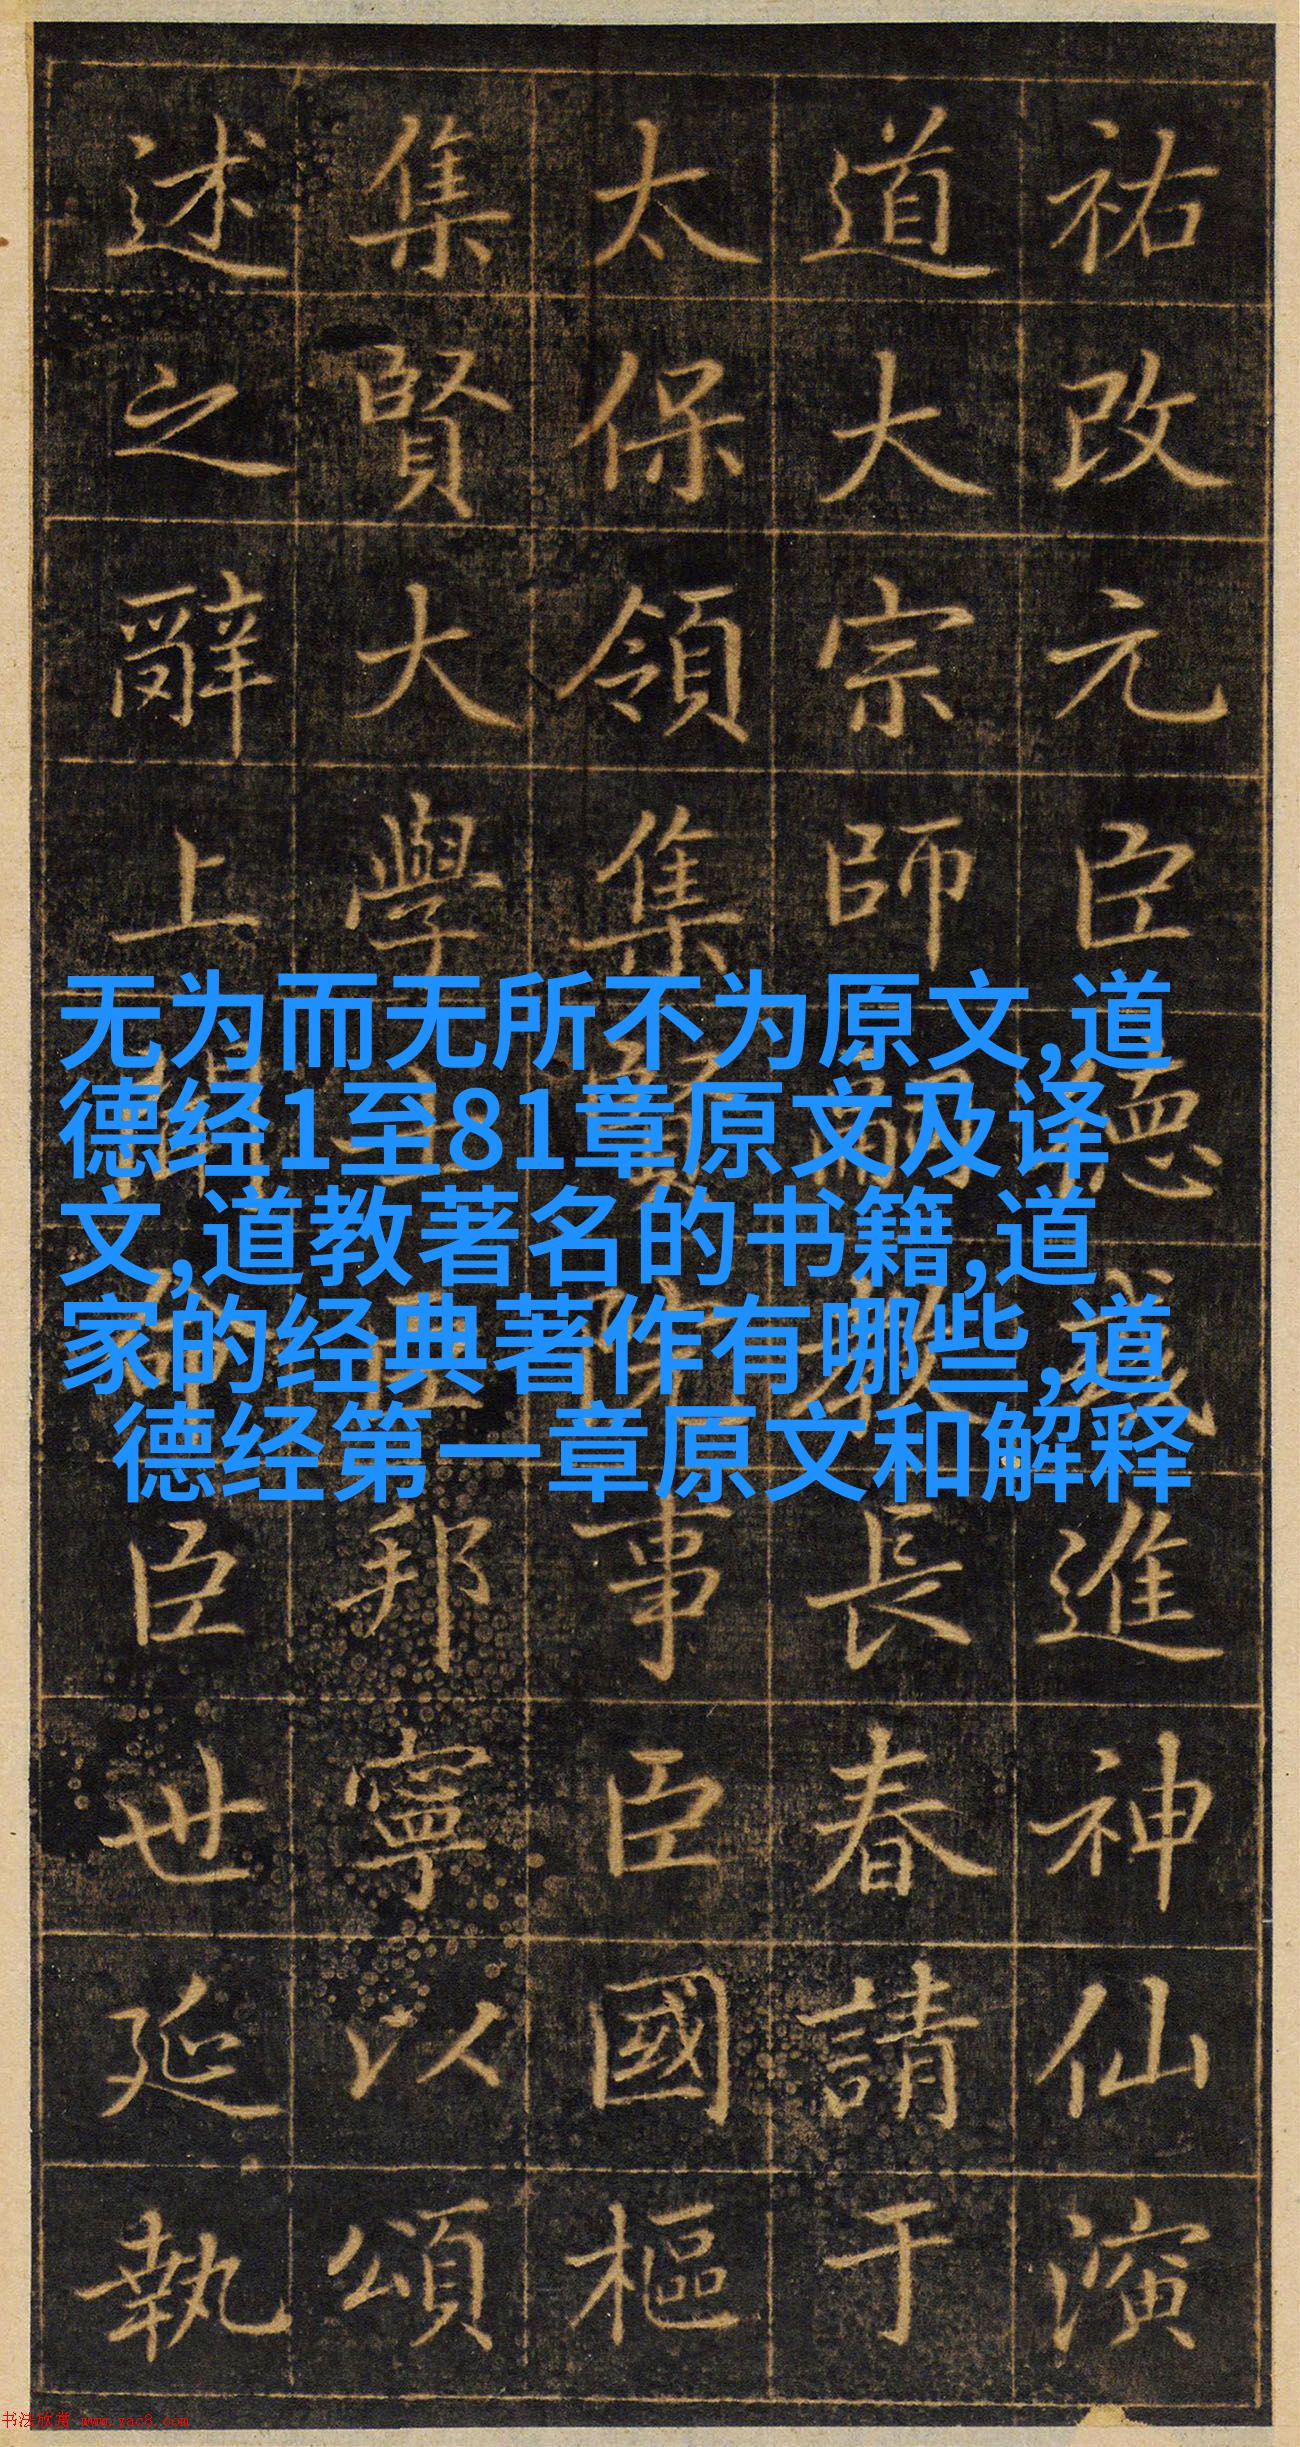 祐改元臣德進神仙演
道大宗師嗣教長春請于
太保領集賢院事臣國樞
集賢大學士臣邦寧以頌
述之辭上聞命臣世延執
无为而无所不为原文,道
德经1至81章原文及译
文,道教著名的书籍,道
家的经典著作有哪些,道
德经第一章原文和解释
书法欣赏 www.yac8.com